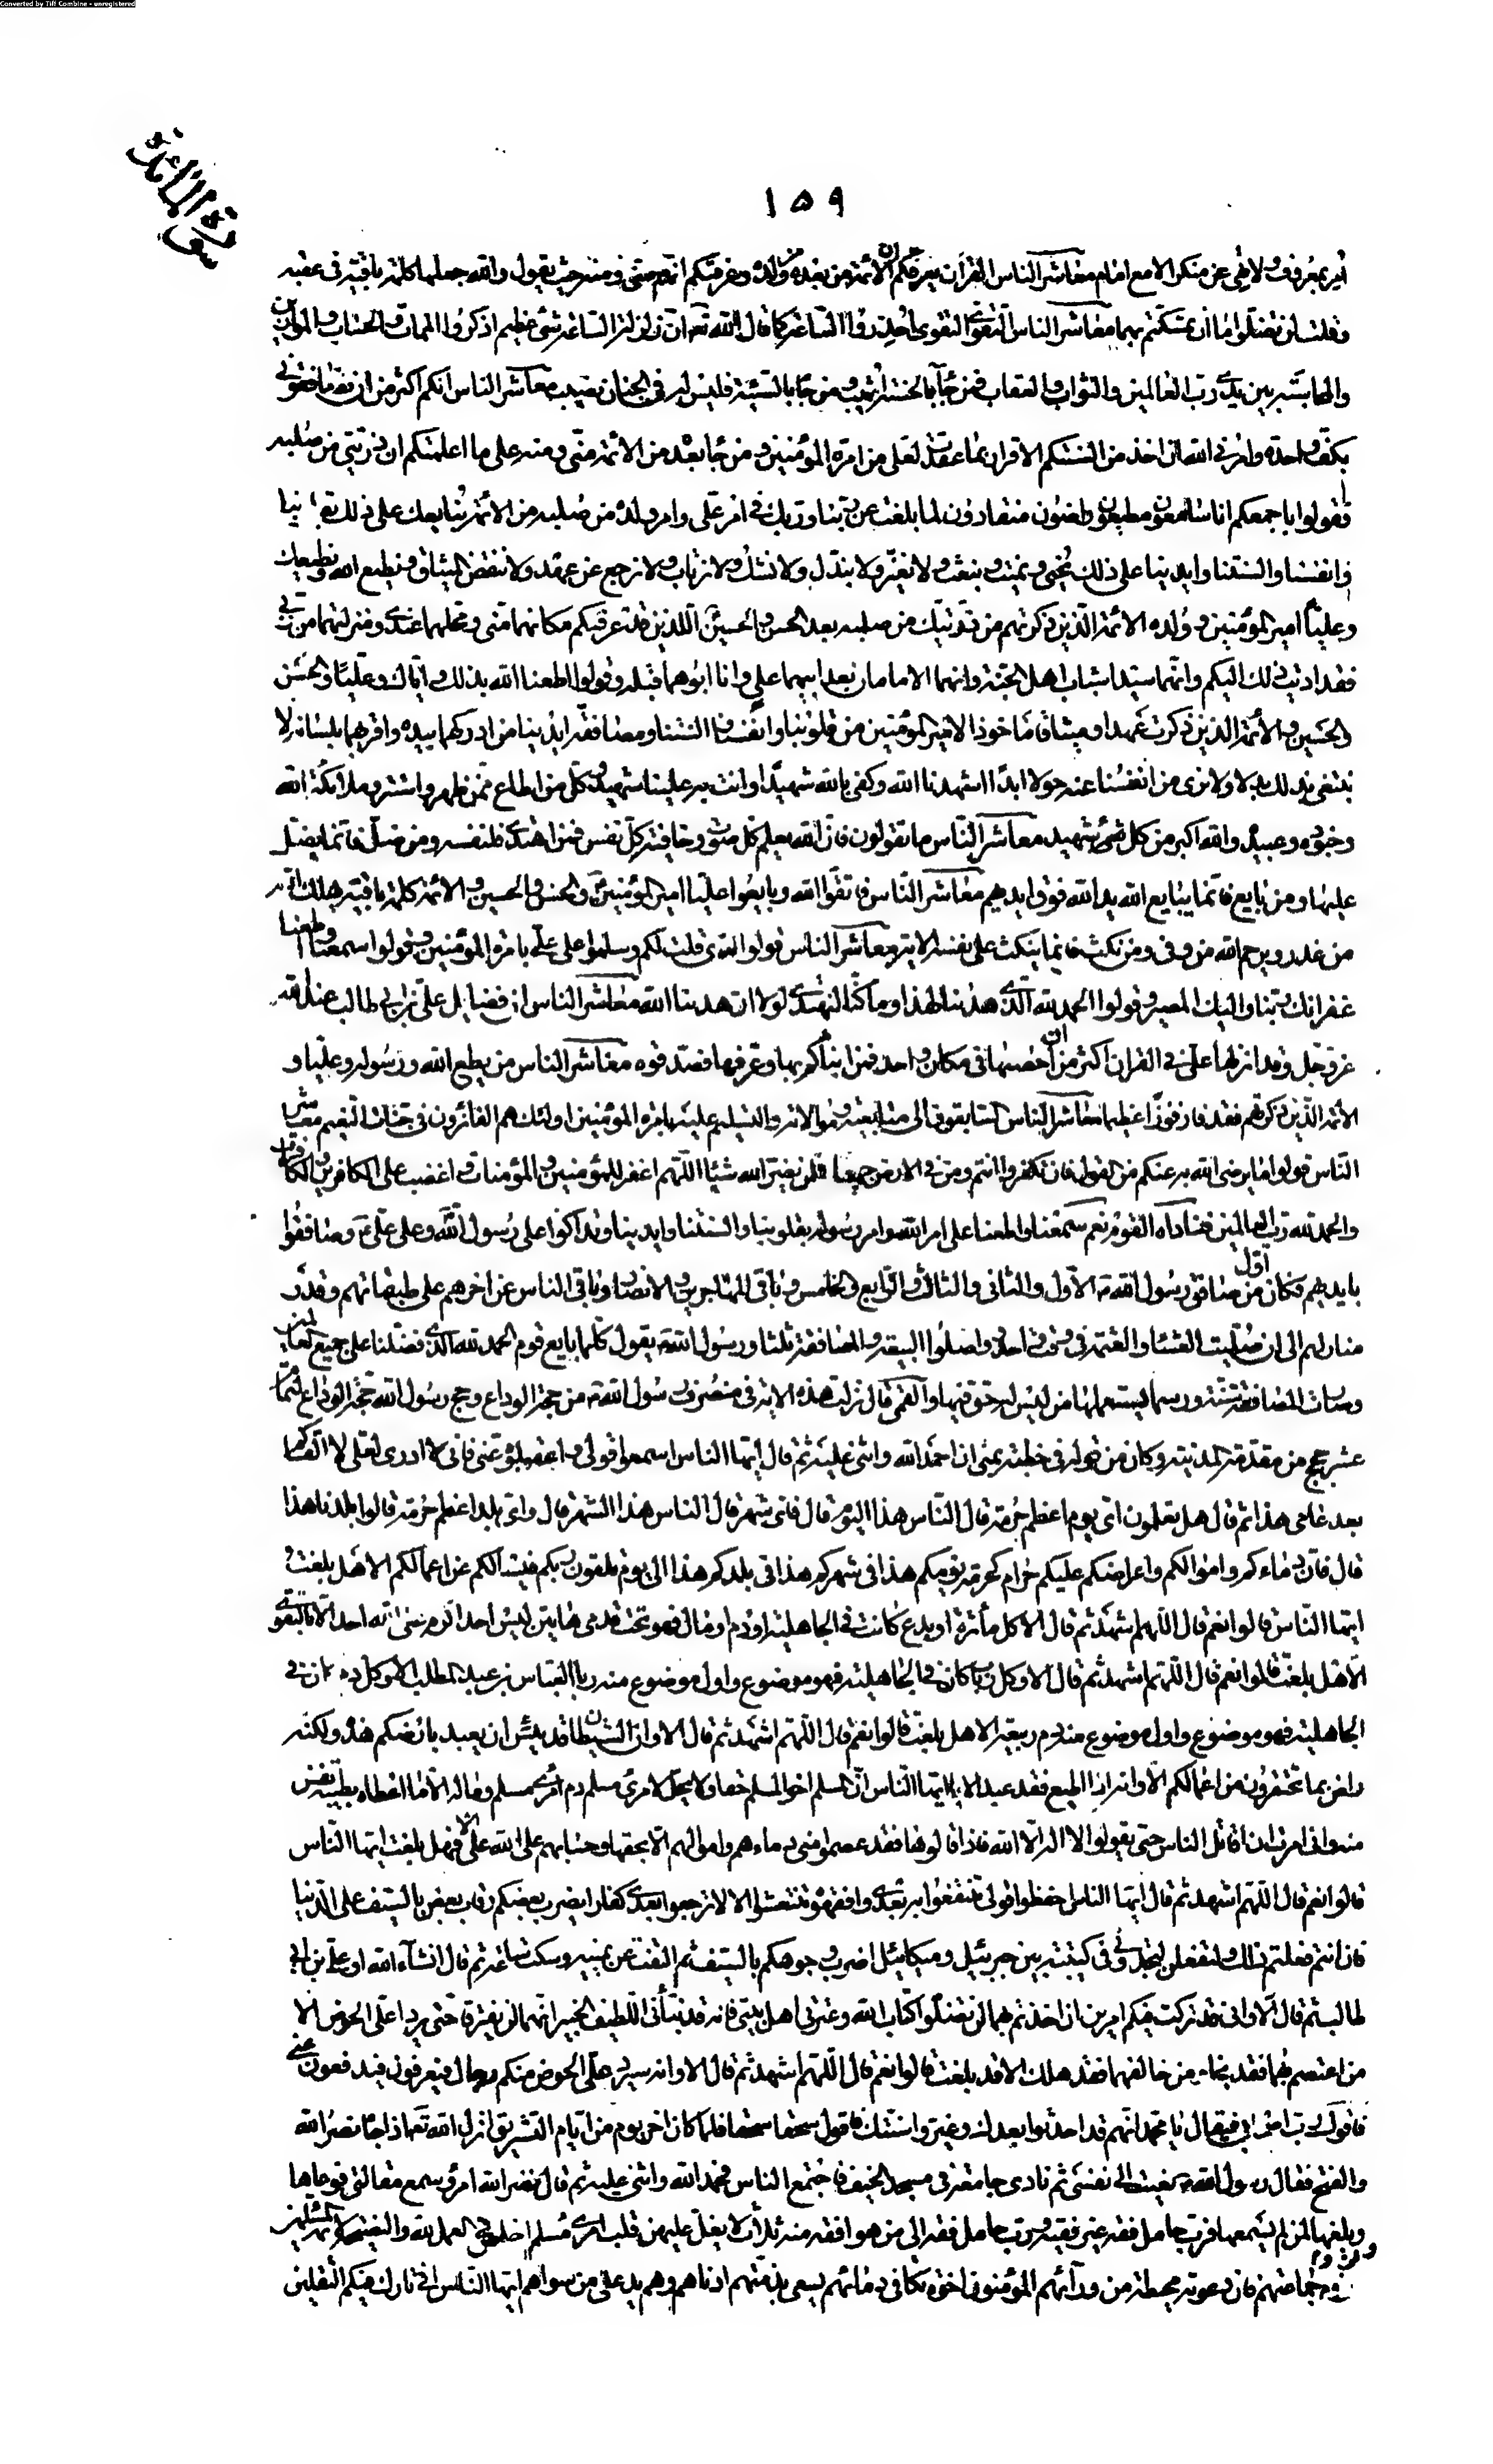 Converted by Tiff Combine - unregistered
سورة المائدة
١٥٩
أمر بمعروف ولا نهي عن منكر الا مع امام معاشر الناس القرآن يعرفكم ان الأئمة من بعده ولده وعرفتكم انهم منى ومنه حيث يقول والله جعلها كلمة باقية في عقبه
وقلت لن تضلوا ما ان تمسكتم بهما معاشر الناس التقوى التقوى احذروا الساعة كما قال الله تعالى ان زلزلة الساعة شيء عظيم اذكروا الممات والحساب والموازين
والمحاسبة بين يدي رب العالمين والثواب والعقاب فمن جاء بالحسنة اثيب ومن جاء بالسيئة فليس له في الجنان نصيب معاشر الناس انكم اكثر من ان تصافقوني
بكف واحدة وامرني الله ان اخذ من السنتكم الاقرار بما عقدت لعلى من امرة المؤمنين ومن جاء بعده من الأئمة منى ومنه على ما اعلمتكم ان ذريتي من صلبه
فقولوا باجمعكم انا سامعون مطيعون راضون منقادون لما بلغت عن ربنا وربك في امر على وامر ولده من صلبه من الأئمة نبايعك على ذلك بقلوبنا
وانفسنا والسنتنا وايدينا على ذلك نحيى ونميت ونبعث ولا نغير ولا نبدل ولا نشك ولا نرتاب ولا نرجع عن عهد ولا ننقض الميثاق ونطيع الله ونطيعك
وعليا امير المؤمنين وولده الأئمة الذين ذكرتهم من ذريتك من صلبه بعد الحسن والحسين اللذين قد عرفتكم مكانهما منى ومحلهما عندي ومنزلتهما من ربي
فقد اديت ذلك اليكم وانهما سيدا شباب اهل الجنة وانهما الامامان بعد ابيهما علي وانا ابوهما قبله وقولوا اطعنا الله بذلك واياك وعليا والحسن
والحسين والأئمة الذين ذكرت عهدا وميثاقا مأخوذا لامير المؤمنين من قلوبنا وانفسنا والسنتنا ومصافقة ايدينا من ادركهما بيده واقر بهما بلسانه لا
نبتغى بذلك بدلا ولا نرى من انفسنا عنه حولا ابدا اشهدنا الله وكفى بالله شهيدا وانت به علينا شهيد وكل من اطاع ممن ظهر واستتر وملائكة الله
وجنوده وعبيده والله اكبر من كل شهيد معاشر الناس ما تقولون فان الله يعلم كل صوت وخافية كل نفس فمن اهتدى فلنفسه ومن ضل فانما يضل
عليها ومن بايع فانما يبايع الله يد الله فوق ايديهم معاشر الناس فاتقوا الله وبايعوا عليا امير المؤمنين والحسن والحسين والأئمة كلمة باقية يهلك الله
من غدر ويرحم الله من وفى ومن نكث فانما ينكث على نفسه الاية معاشر الناس قولوا الذي قلت لكم وسلموا على على بامرة المؤمنين وقولوا سمعنا واطعنا
غفرانك ربنا واليك المصير وقولوا الحمد لله الذي هدينا لهذا وما كنا لنهتدي لولا ان هدينا الله معاشر الناس ان فضايل على بن ابي طالب عند الله
عز وجل وقد انزلها على في القرآن اكثر من ان احصيها في مكان واحد فمن انبأكم بها وعرفها فصدقوه معاشر الناس من يطع الله ورسوله وعليا و
الأئمة الذين ذكرتهم فقد فاز فوزا عظيما معاشر الناس السابقون الى مبايعته وموالاته والتسليم عليه بامرة المؤمنين اولئك هم الفائزون في جنات النعيم معاشر
الناس قولوا ما يرضى الله به عنكم من القول فان تكفروا انتم ومن في الارض جميعا فلن يضر الله شيئا اللهم اغفر للمؤمنين والمؤمنات واغضب على الكافرين والكافرات
والحمد لله رب العالمين فناداه القوم نعم سمعنا واطعنا على امر الله وامر رسوله بقلوبنا والسنتنا وايدينا وتداكوا على رسول الله وعلى علي ع وصافقوا
بايديهم فكان اول من صافق رسول الله ص الاول والثاني والثالث والرابع والخامس وباقي المهاجرين والانصار وباقي الناس عن اخرهم على طبقاتهم وقدر
منازلهم الى ان صليت العشاء والعتمة في وقت واحد واصلوا البيعة والمصافقة ثلثا ورسول الله ص يقول كلما بايع قوم الحمد لله الذي فضلنا على جميع العالمين
وصارت المصافقة سنة ورسما يستعملها من ليس له حق فيها والقمى قال نزلت هذه الاية في منصرف رسول الله ص من حجة الوداع وحج رسول الله حجة الوداع لتمام
عشر حجج من مقدمة المدينة وكان من قوله في خطبته بمنى ان حمد الله واثنى عليه ثم قال ايها الناس اسمعوا قولي واعقلوه عنى فاني لا ادرى لعلى لا القاكم
بعد عامى هذا ثم قال هل تعلمون اى يوم اعظم حرمة قال الناس هذا اليوم قال فاى شهر قال الناس هذا الشهر قال واى بلد اعظم حرمة قالوا بلدنا هذا
قال فان دماءكم واموالكم واعراضكم عليكم حرام كحرمة يومكم هذا في شهركم هذا في بلدكم هذا الى يوم تلقون ربكم فيسئلكم عن اعمالكم الا هل بلغت
ايها الناس قالوا نعم قال اللهم اشهد ثم قال الا كل مأثرة او بدع كانت في الجاهلية او دم او مال فهو تحت قدمى هاتين ليس احد اكرم من احد الا بالتقوى
الا هل بلغت قالوا نعم قال اللهم اشهد ثم قال الا وكل ربا كان في الجاهلية فهو موضوع واول موضوع منه ربا العباس بن عبد المطلب الا وكل دم كان في
الجاهلية فهو موضوع واول موضوع منه دم ربيعة الا هل بلغت قالوا نعم قال اللهم اشهد ثم قال الا وان الشيطان قد يئس ان يعبد بارضكم هذه ولكنه
راض بما تحتقرون من اعمالكم الا وانه اذا اطيع فقد عبد الا ايها الناس ان المسلم اخو المسلم حقا ولا يحل لامرئ مسلم دم امرئ مسلم وماله الا ما اعطاه بطيبة نفس
منه وانى امرت ان اقاتل الناس حتى يقولوا لا اله الا الله فاذا قالوها فقد عصموا منى دماءهم واموالهم الا بحقها وحسابهم على الله الا فهل بلغت ايها الناس
قالوا نعم قال اللهم اشهد ثم قال ايها الناس احفظوا قولي تنتفعوا به بعدى وافقهوه تنتعشوا الا لا ترجعوا بعدى كفارا يضرب بعضكم رقاب بعض بالسيف على الدنيا
فان انتم فعلتم ذلك ولتفعلن لتجدوني في كتيبة بين جبرئيل وميكائيل اضرب وجوهكم بالسيف ثم التفت عن يمينه وسكت ساعة ثم قال انشاء الله او علي بن ابي
طالب ثم قال الا وانى قد تركت فيكم امرين ان اخذتم بهما لن تضلوا كتاب الله وعترتي اهل بيتي فانه قد نبأنى اللطيف الخبير انهما لن يفترقا حتى يردا على الحوض الا
من اعتصم بهما فقد نجا ومن خالفهما فقد هلك الا قد بلغت قالوا نعم قال اللهم اشهد ثم قال الا وانه سيرد على الحوض منكم رجال فيعرفون فيدفعون عنى
فاقول رب اصحابي فيقال يا محمد انهم قد احدثوا بعدك وغيروا سنتك فاقول سحقا سحقا فلما كان اخر يوم من ايام التشريق انزل الله تعالى اذا جاء نصر الله
والفتح فقال رسول الله ص نعيت الى نفسي ثم نادى جامعة في مسجد الخيف فاجتمع الناس فحمد الله واثنى عليه ثم قال نضر الله امرء سمع مقالتي فوعاها
وبلغها لمن لم يسمعها فرب حامل فقه غير فقيه ورب حامل فقه الى من هو افقه منه ثلاث لا يغل عليهن قلب امرئ مسلم اخلاص العمل لله والنصيحة لأئمة المسلمين
ولزوم جماعتهم فان دعوته محيطة من ورائهم المؤمنون اخوة تكافى دمائهم يسعى بذمتهم ادناهم وهم يد على من سواهم ايها الناس انى تارك فيكم الثقلين